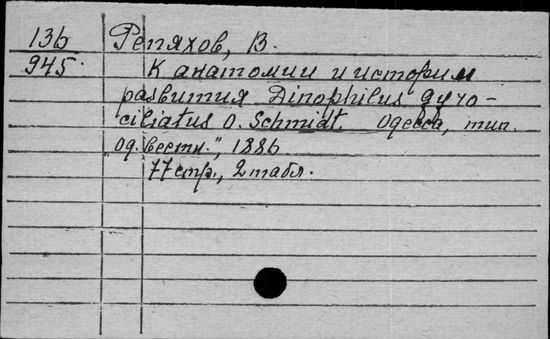 136 Репяхов, В.
945 К анатомии и истории
развития Dinophilus gyro-
ciliatus O. Schmidt. Одесса, тип.
"Од. вестн.", 1886
77 стр., 2 табл.